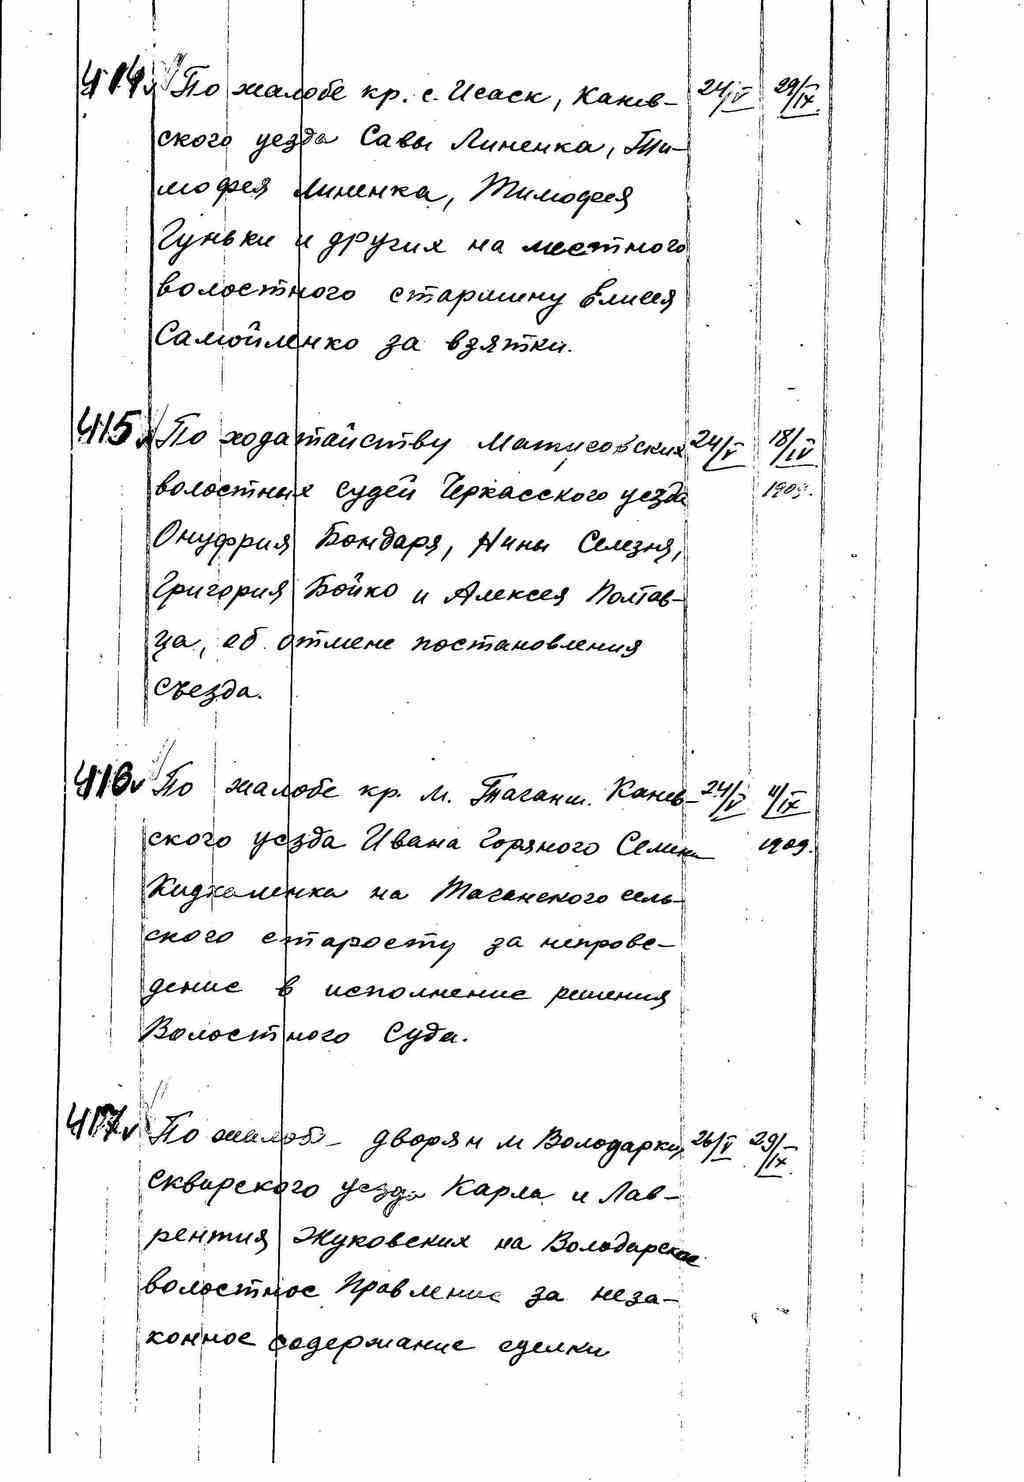 414 По жалобе кр. с. Исаск, Канев- 24/V 29/IX
ского уезда Савы Линенка, Ти-
мофея Линенка, Тимофея
Гуньки и других на местного
волостного старшину Елисея
Самойленко за взятки.
415 По ходатайству Матусовских 24/V 18/IV
волостных судей Черкасского уезда 1909.
Онуфрия Бондаря, Нины Селезня,
Григория Бойко и Алексея Полтав-
ца, об отмене постановления
съезда.
416 По жалобе кр. м. Таганч. Канев- 24/V 11/IX
ского уезда Ивана Горяного Семена 1909.
на Таганского сель-
ского старосту за непрове-
дение в исполнение решения
Волостного Суда.
417 По жалобе дворян м Володарки, 26/V 29/IX
Сквирского уезда Карла и Лав-
рентия Жуковских на Володарское
волостное Правление за неза-
конное содержание сделки